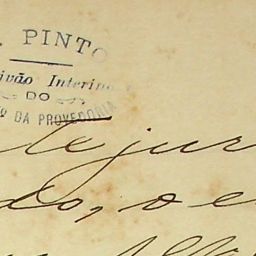 . PINTO
ivão Interino
DO
º DA PROVEDORIA
te jur
do, o e